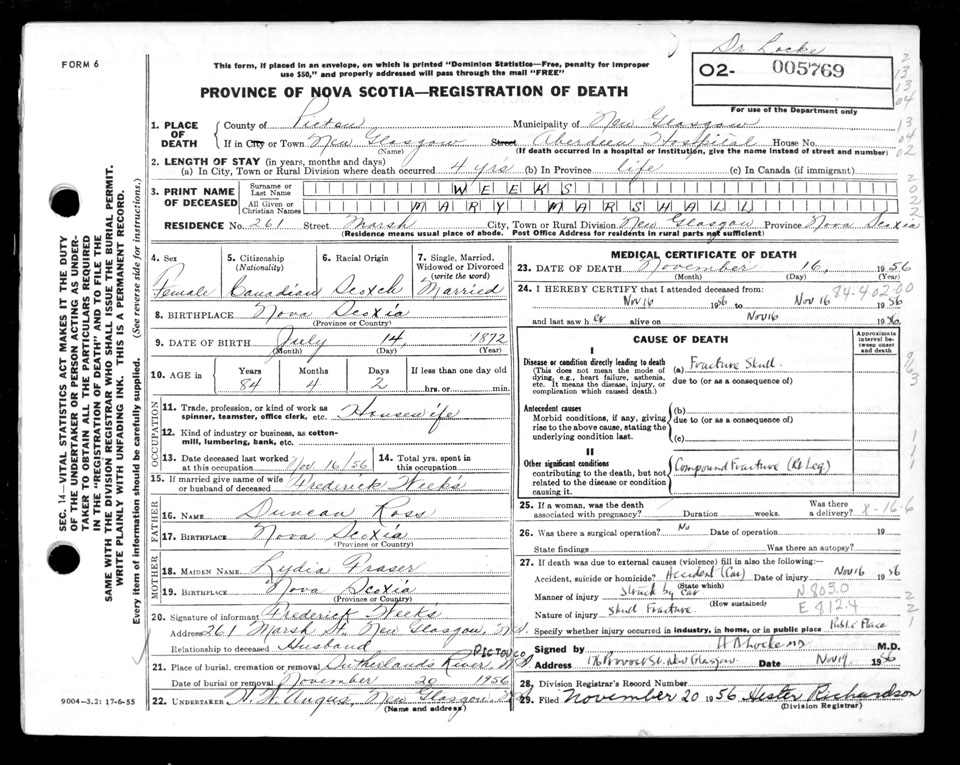 Dr Locke
FORM 6
This form, if placed in an envelope, on which is printed "Dominion Statistics—Free, penalty for improper
use $50," and properly addressed will pass through the mail "FREE"
02- 005769
PROVINCE OF NOVA SCOTIA—REGISTRATION OF DEATH
For use of the Department only
1. PLACE OF DEATH County of Pictou Municipality of New Glasgow
If in City or Town New Glasgow Street Aberdeen Hospital House No.
(Name) (If death occurred in a hospital or institution, give the name instead of street and number)
2. LENGTH OF STAY (in years, months and days)
(a) In City, Town or Rural Division where death occurred 4 yrs (b) In Province life (c) In Canada (if immigrant)
3. PRINT NAME OF DECEASED Surname or Last Name WEEKS
All Given or Christian Names MARY MARSHALL
RESIDENCE No. 261 Street Marsh City, Town or Rural Division New Glasgow Province Nova Scotia
(Residence means usual place of abode. Post Office Address for residents in rural parts not sufficient)
4. Sex Female
5. Citizenship (Nationality) Canadian
6. Racial Origin Scotch
7. Single, Married, Widowed or Divorced (write the word) Married
8. BIRTHPLACE Nova Scotia
(Province or Country)
9. DATE OF BIRTH July 14, 1872
(Month) (Day) (Year)
10. AGE in Years 84 Months 4 Days 2 If less than one day old
hrs. or min.
OCCUPATION
11. Trade, profession, or kind of work as spinner, teamster, office clerk, etc. Housewife
12. Kind of industry or business, as cotton-mill, lumbering, bank, etc.
13. Date deceased last worked at this occupation Nov. 16/56 14. Total yrs. spent in this occupation
15. If married give name of wife or husband of deceased Frederick Weeks
FATHER
16. NAME Duncan Ross
17. BIRTHPLACE Nova Scotia
(Province or Country)
MOTHER
18. MAIDEN NAME Lydia Fraser
19. BIRTHPLACE Nova Scotia
(Province or Country)
20. Signature of informant Frederick Weeks
Address 261 Marsh St. New Glasgow, N.S.
Relationship to deceased Husband
21. Place of burial, cremation or removal Sutherlands River, N.S. PICTOU CO
Date of burial or removal November 20 1956
22. UNDERTAKER New Glasgow, N.S.
(Name and address)
MEDICAL CERTIFICATE OF DEATH
23. DATE OF DEATH November 16, 1956
(Month) (Day) (Year)
24. I HEREBY CERTIFY that I attended deceased from: 84-4 02-00
Nov 16 1956 to Nov 16 1956
and last saw her alive on Nov 16 1956
CAUSE OF DEATH
Approximate interval between onset and death
I
Disease or condition directly leading to death
(This does not mean the mode of dying, e.g., heart failure, asthenia, etc. It means the disease, injury, or complication which caused death.)
(a) Fracture Skull.
due to (or as a consequence of)
Antecedent causes
Morbid conditions, if any, giving rise to the above cause, stating the underlying condition last.
(b)
due to (or as a consequence of)
(c)
II
Other significant conditions
contributing to the death, but not related to the disease or condition causing it.
Compound Fracture (Rt Leg)
25. If a woman, was the death associated with pregnancy? Duration weeks. Was there a delivery? X-16-6
26. Was there a surgical operation? No Date of operation 19
State findings Was there an autopsy?
27. If death was due to external causes (violence) fill in also the following:
Accident, suicide or homicide? Accident (Car) Date of injury Nov 16 1956
(State which)
Manner of injury Struck by car N 803.0
(How sustained)
Nature of injury Skull Fracture E 812.4
Specify whether injury occurred in industry, in home, or in public place Public Place
Signed by M.D.
Address 176 Provost St. New Glasgow Date Nov 19 1956
28. Division Registrar's Record Number
29. Filed November 20 1956 Hester Richardson
(Division Registrar)
SEC. 14—VITAL STATISTICS ACT MAKES IT THE DUTY
OF THE UNDERTAKER OR PERSON ACTING AS UNDER-
TAKER TO OBTAIN ALL THE PARTICULARS REQUIRED
IN THE "REGISTRATION OF DEATH" AND TO FILE THE
SAME WITH THE DIVISION REGISTRAR WHO SHALL ISSUE THE BURIAL PERMIT.
WRITE PLAINLY WITH UNFADING INK. THIS IS A PERMANENT RECORD.
Every item of information should be carefully supplied. (See reverse side for instructions.)
9004-3.2: 17-6-55